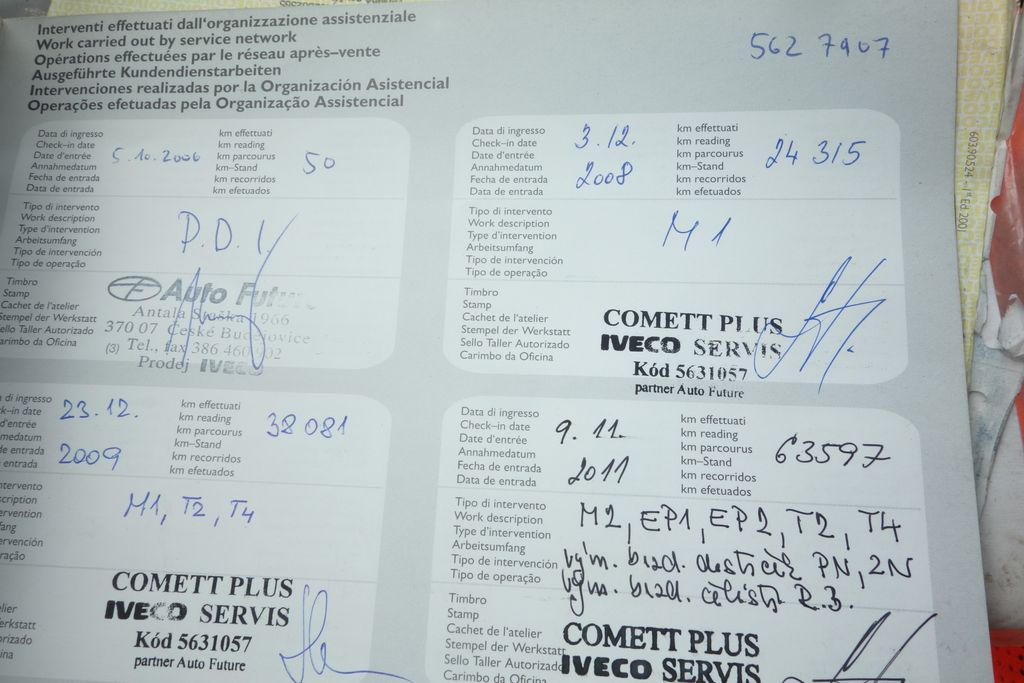 Interventi effettuati dall'organizzazione assistenziale
Work carried out by service network
Opérations effectuées par le réseau après-vente
Ausgeführte Kundendienstarbeiten
Intervenciones realizadas por la Organización Asistencial
Operações efetuadas pela Organização Assistencial
562 7907
Data di ingresso
Check-in date
Date d'entrée
Annahmedatum
Fecha de entrada
Data de entrada
5.10.2006
km effettuati
km reading
km parcourus
km-Stand
km recorridos
km efetuados
50
Tipo di intervento
Work description
Type d'intervention
Arbeitsumfang
Tipo de intervención
Tipo de operação
P.D.I
Timbro
Stamp
Cachet de l'atelier
Stempel der Werkstatt
Sello Taller Autorizado
Carimbo da Oficina
Auto Future
Antala Staška 1966
370 07 České Budějovice
(3) Tel., fax 386 460
Prodej IVECO
Data di ingresso
Check-in date
Date d'entrée
Annahmedatum
Fecha de entrada
Data de entrada
3.12.
2008
km effettuati
km reading
km parcourus
km-Stand
km recorridos
km efetuados
24 315
Tipo di intervento
Work description
Type d'intervention
Arbeitsumfang
Tipo de intervención
Tipo de operação
M1
Timbro
Stamp
Cachet de l'atelier
Stempel der Werkstatt
Sello Taller Autorizado
Carimbo da Oficina
COMETT PLUS
IVECO SERVIS
Kód 5631057
partner Auto Future
a di ingresso
k-in date
d'entrée
medatum
de entrada
entrada
23.12.
2009
km effettuati
km reading
km parcourus
km-Stand
km recorridos
km efetuados
38 081
ntervento
cription
ervention
ang
ervención
ração
M1, T2, T4
elier
erkstatt
orizado
ina
COMETT PLUS
IVECO SERVIS
Kód 5631057
partner Auto Future
Data di ingresso
Check-in date
Date d'entrée
Annahmedatum
Fecha de entrada
Data de entrada
9.11.
2011
km effettuati
km reading
km parcourus
km-Stand
km recorridos
km efetuados
63597
Tipo di intervento
Work description
Type d'intervention
Arbeitsumfang
Tipo de intervención
Tipo de operação
M2, EP1, EP2, T2, T4
vým. brzd. destiček PN, ZN
vým. brzd. čelistí R.B.
Timbro
Stamp
Cachet de l'atelier
Stempel der Werkstatt
Sello Taller Autorizado
Carimbo da Oficina
COMETT PLUS
IVECO SERVIS
603.90.524 - 1st Ed. 200